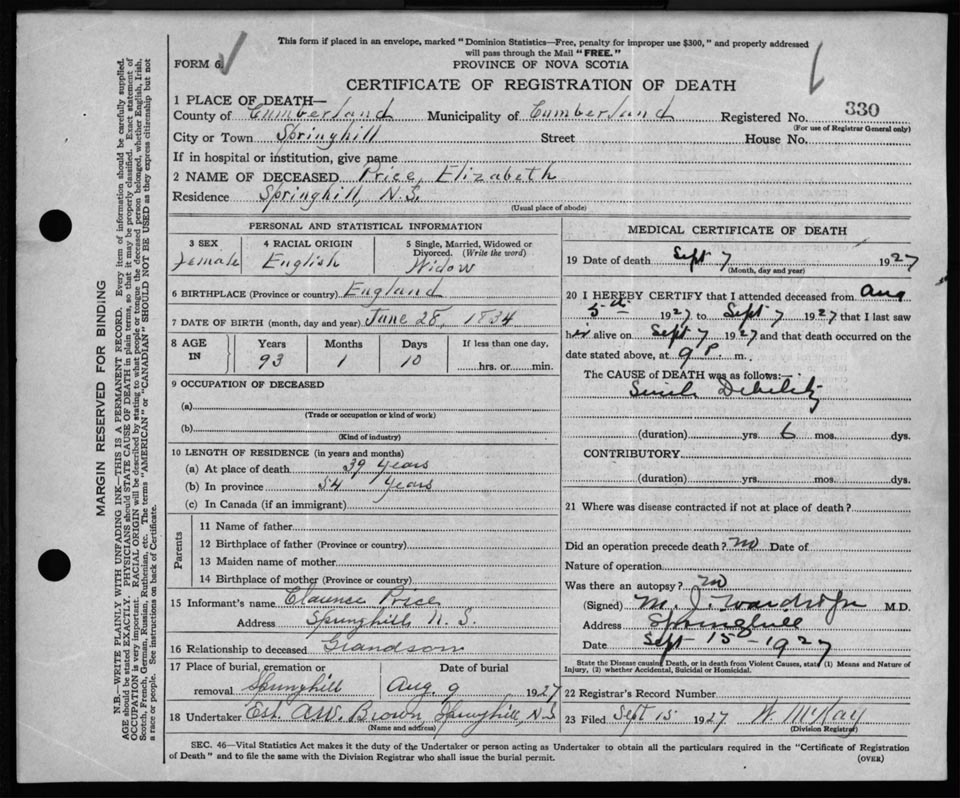 This form if placed in an envelope, marked "Dominion Statistics—Free, penalty for improper use $300," and properly addressed
will pass through the Mail "FREE."
FORM 6
PROVINCE OF NOVA SCOTIA
CERTIFICATE OF REGISTRATION OF DEATH
1 PLACE OF DEATH—
County of Cumberland Municipality of Cumberland Registered No. 330
(For use of Registrar General only)
City or Town Springhill Street House No.
If in hospital or institution, give name
2 NAME OF DECEASED Price, Elizabeth
Residence Springhill, N.S.
(Usual place of abode)
PERSONAL AND STATISTICAL INFORMATION
3 SEX 4 RACIAL ORIGIN 5 Single, Married, Widowed or
Divorced. (Write the word)
Female English Widow
6 BIRTHPLACE (Province or country) England
7 DATE OF BIRTH (month, day and year) June 28, 1834
8 AGE IN Years Months Days If less than one day,
93 1 10 hrs. or min.
9 OCCUPATION OF DECEASED
(a)
(Trade or occupation or kind of work)
(b)
(Kind of industry)
10 LENGTH OF RESIDENCE (in years and months)
(a) At place of death 39 years
(b) In province 54 years
(c) In Canada (if an immigrant)
Parents
11 Name of father
12 Birthplace of father (Province or country)
13 Maiden name of mother
14 Birthplace of mother (Province or country)
15 Informant's name Clarence Price
Address Springhill N.S.
16 Relationship to deceased Grandson
17 Place of burial, cremation or Date of burial
removal Springhill Aug. 9 1927
18 Undertaker Est. A.W. Brown, Springhill, N.S
(Name and address)
MEDICAL CERTIFICATE OF DEATH
19 Date of death Sept 7 1927
(Month, day and year)
20 I HEREBY CERTIFY that I attended deceased from Aug
5th 1927 to Sept 7 1927 that I last saw
her alive on Sept 7 1927 and that death occurred on the
date stated above, at 9 P. m.
The CAUSE of DEATH was as follows:—
Senile Debility
(duration) yrs. 6 mos. dys.
CONTRIBUTORY
(duration) yrs. mos. dys.
21 Where was disease contracted if not at place of death?
Did an operation precede death? no Date of
Nature of operation
Was there an autopsy? no
(Signed) M. J. M.D.
Address Springhill
Date Sept 15 1927
State the Disease causing Death, or in death from Violent Causes, state (1) Means and Nature of
Injury, (2) whether Accidental, Suicidal or Homicidal.
22 Registrar's Record Number
23 Filed Sept 15 1927 W. McKay
(Division Registrar)
SEC. 46—Vital Statistics Act makes it the duty of the Undertaker or person acting as Undertaker to obtain all the particulars required in the "Certificate of Registration
of Death" and to file the same with the Division Registrar who shall issue the burial permit.
(OVER)
MARGIN RESERVED FOR BINDING
N.B.—WRITE PLAINLY WITH UNFADING INK—THIS IS A PERMANENT RECORD. Every item of information should be carefully supplied.
AGE should be stated EXACTLY. PHYSICIANS should STATE CAUSE OF DEATH in plain terms, so that it may be properly classified. Exact statement of
OCCUPATION is very important. RACIAL ORIGIN will be described by stating to what people or tongue the deceased person belonged, whether English, Irish,
Scotch, French, German, Russian, Ruthenian, etc. The terms "AMERICAN" or "CANADIAN" SHOULD NOT BE USED as they express citizenship but not
a race or people. See instructions on back of Certificate.